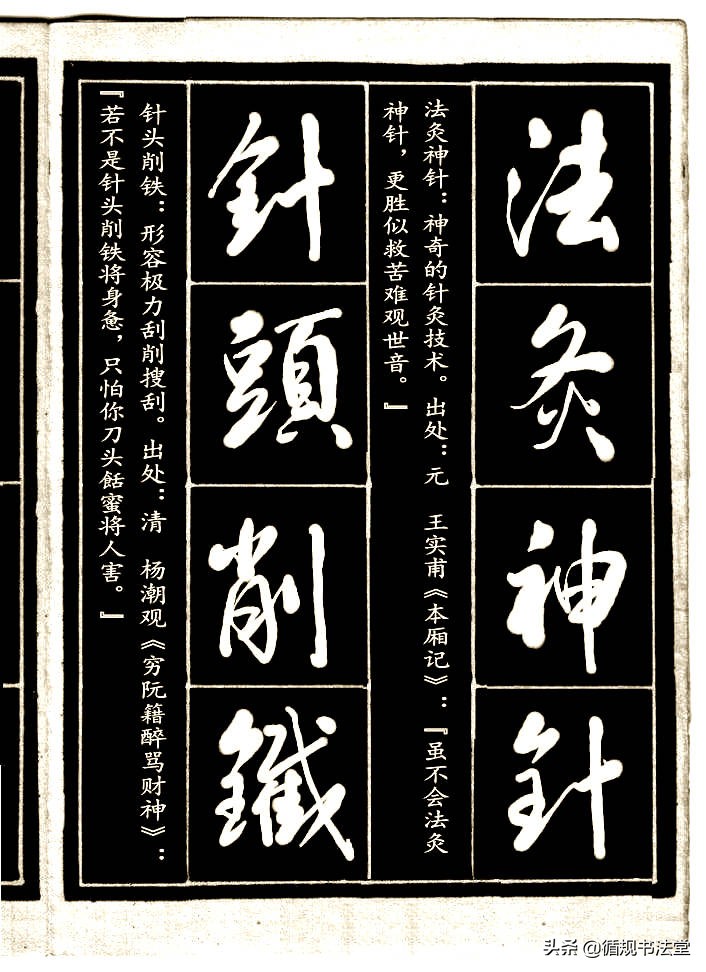 法灸神针
法灸神针：神奇的针灸技术。出处：元 王实甫《本厢记》：『虽不会法灸
神针，更胜似救苦难观世音。』
針頭削鐵
针头削铁：形容极力刮削搜刮。出处：清 杨潮观《穷阮籍醉骂财神》：
『若不是针头削铁将身惫，只怕你刀头餂蜜将人害。』
头条 @循规书法堂